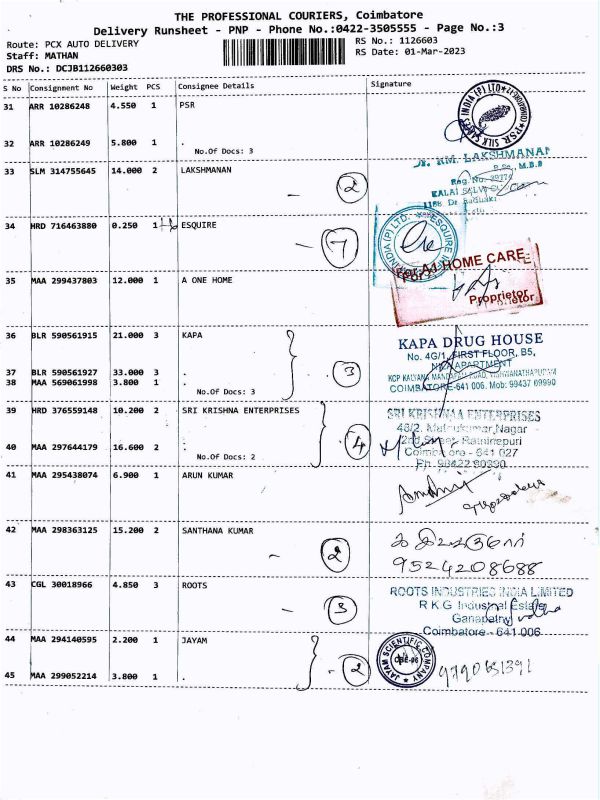 THE PROFESSIONAL COURIERS, Coimbatore
Delivery Runsheet - PNP - Phone No.:0422-3505555 - Page No.:3
Route: PCX AUTO DELIVERY
RS No.: 1126603
Staff: MATHAN
RS Date: 01-Mar-2023
DRS No.: DCJB112660303
S No Consignment No Weight PCS Consignee Details Signature
31 ARR 10286248 4.550 1 PSR
32 ARR 10286249 5.800 1 .
No.Of Docs: 3
33 SLM 314755645 14.000 2 LAKSHMANAN
- 2
LAKSHMANA
34 HRD 716463880 0.250 1 ESQUIRE
- 7
ESQUIRE INDIA (P) LTD.
35 MAA 299437803 12.000 1 A ONE HOME
For A1 HOME CARE
Proprietor
36 BLR 590561915 21.000 3 KAPA
37 BLR 590561927 33.000 3 .
38 MAA 569061998 3.800 1 .
No.Of Docs: 3
- 3
KAPA DRUG HOUSE
No. 4G/1, FIRST FLOOR, B5,
APARTMENT
COIMBATORE-641 006. Mob: 99437 09990
39 HRD 376559148 10.200 2 SRI KRISHNA ENTERPRISES
40 MAA 297644179 16.600 2 .
No.Of Docs: 2
- 4
SRI KRISHNAA ENTERPRISES
Nagar
2nd Street, Rathinapuri
Coimbatore - 641 027
41 MAA 295438074 6.900 1 ARUN KUMAR
42 MAA 298363125 15.200 2 SANTHANA KUMAR
- 2
9524208688
43 CGL 30018966 4.850 3 ROOTS
- 3
ROOTS INDUSTRIES INDIA LIMITED
R K G Industrial Estate
Ganapathy
Coimbatore - 641 006
44 MAA 294140595 2.200 1 JAYAM
45 MAA 299052214 3.800 1 .
- 2
JAYAM SCIENTIFIC COMPANY
CBE-06